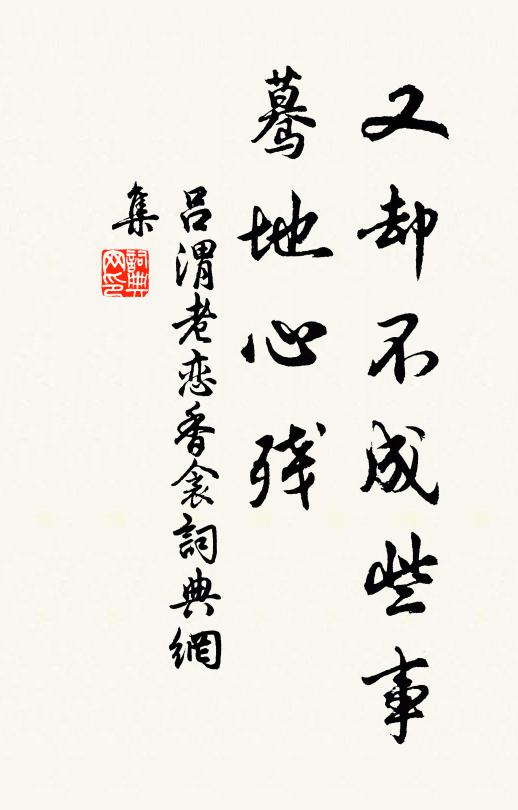 又却不成些事
蓦地心残
吕渭老恋香衾詞典網
集
詞典
网印